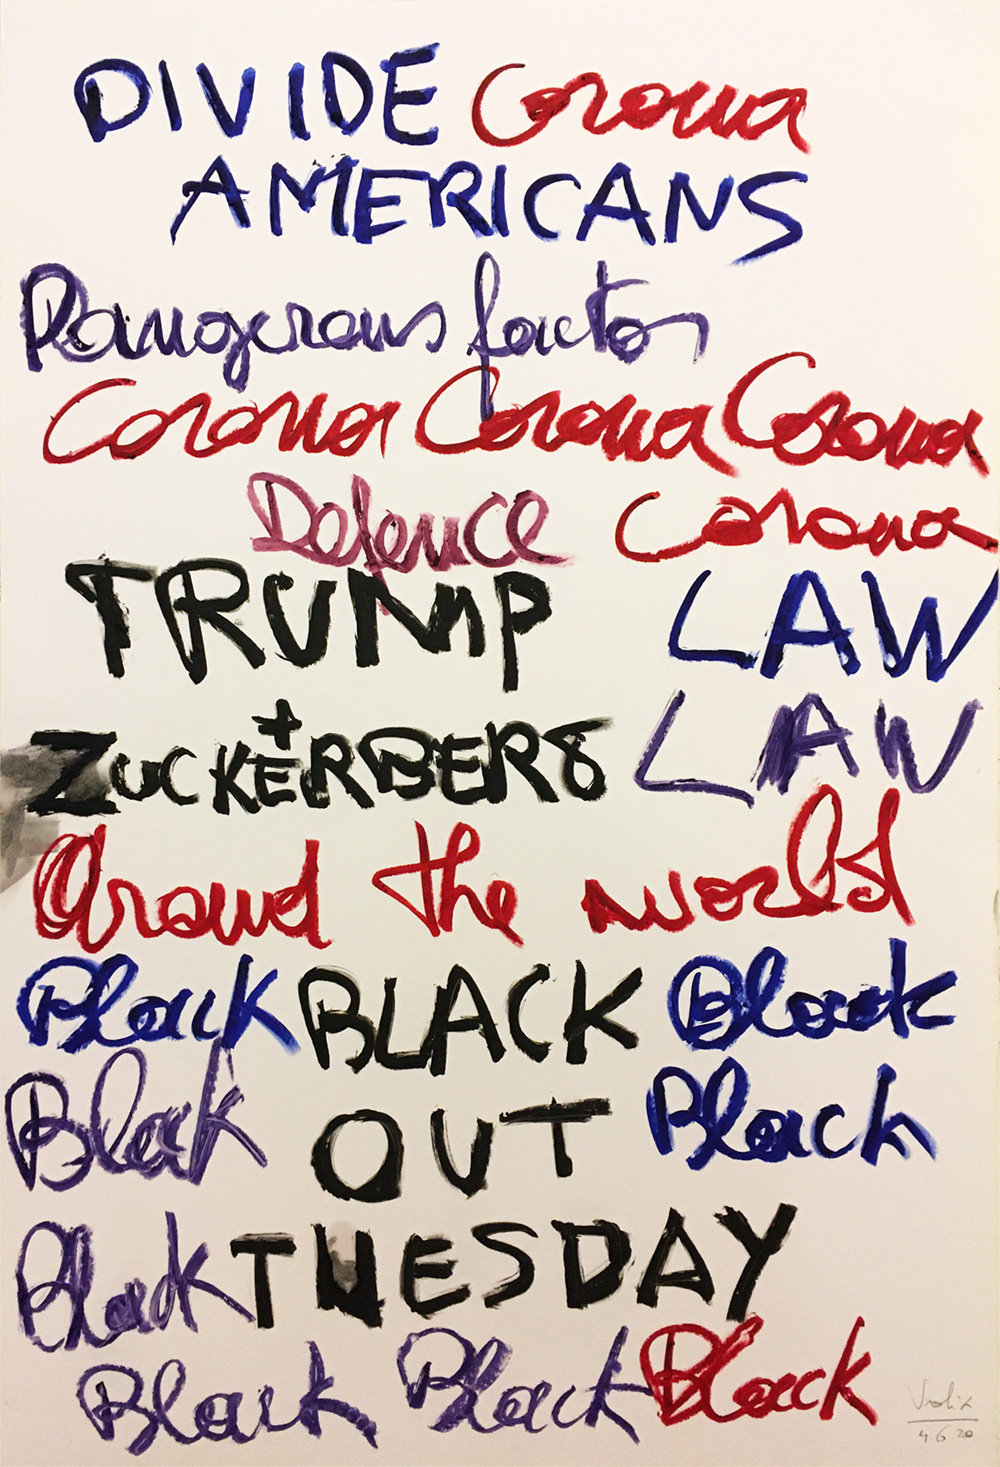 DIVIDE Corona
AMERICANS
Dangerous factor
Corona Corona Corona
Defence Corona
TRUMP LAW
+
ZUCKERBERG LAW
Around the world
Black BLACK Black
Black OUT Black
Black TUESDAY
Black Black Black
4.6.20